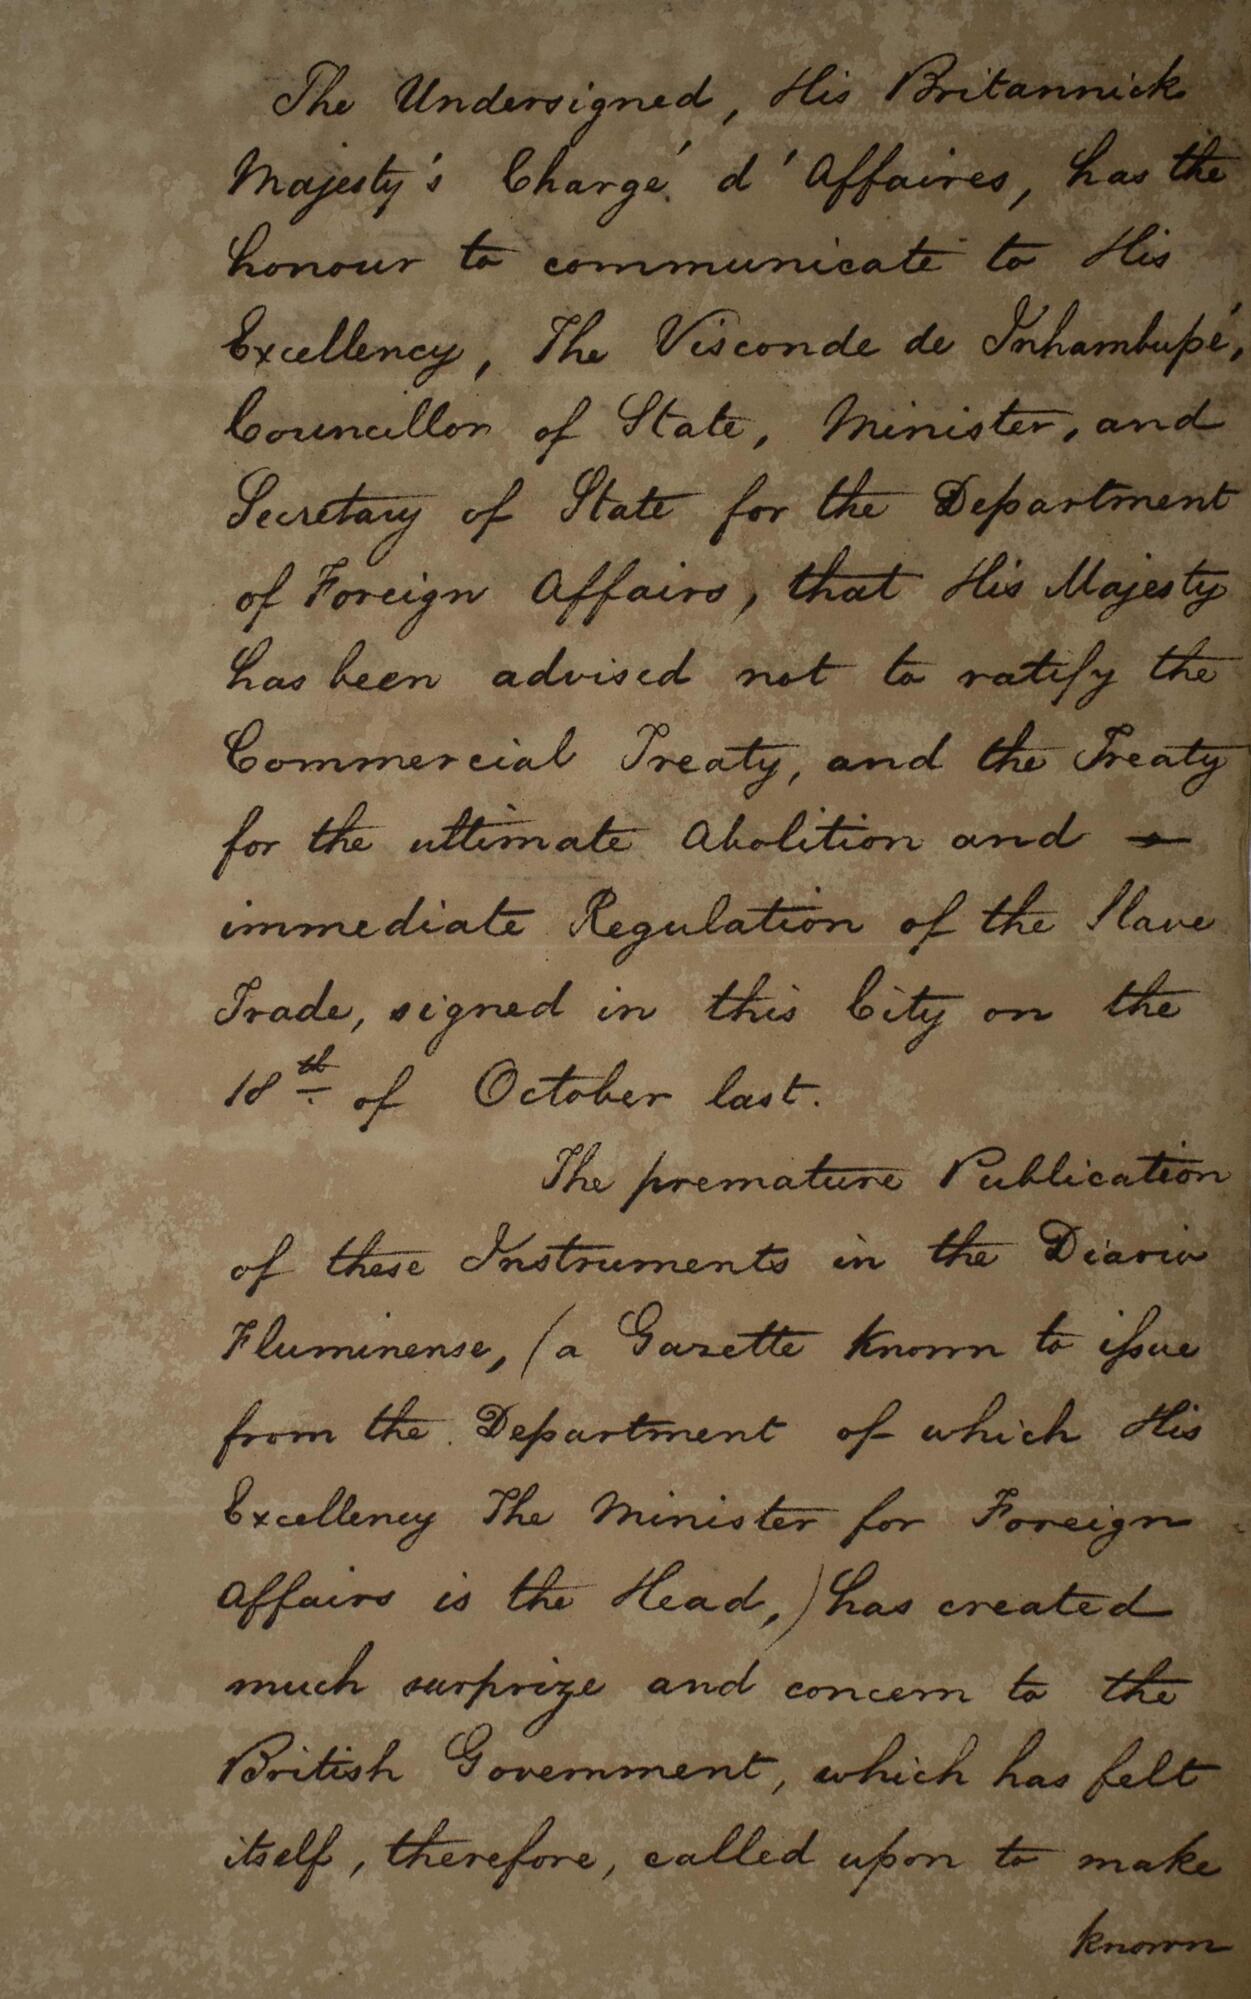 The Undersigned, His Britannick
Majesty's Chargé d'Affaires, has the
honour to communicate to His
Excellency, The Visconde de Inhambupé,
Councillor of State, Minister, and
Secretary of State for the Department
of Foreign Affairs, that His Majesty
has been advised not to ratify the
Commercial Treaty, and the Treaty
for the ultimate Abolition and —
immediate Regulation of the Slave
Trade, signed in this City on the
18th of October last.
The premature Publication
of these Instruments in the Diario
Fluminense, (a Gazette known to issue
from the Department of which His
Excellency The Minister for Foreign
Affairs is the Head,) has created
much surprize and concern to the
British Government, which has felt
itself, therefore, called upon to make
known